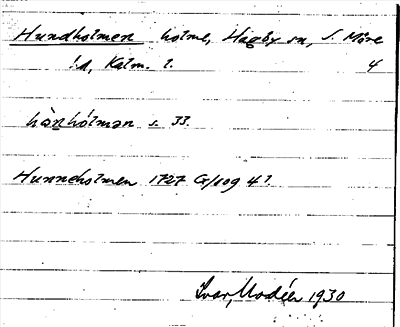 Hundholmen holme, Hagby sn, S. Möre
hd, Kalm. l. 4
hòn̲hólmən s. 33.
Hunneholmen 1727 G/109 4?.
Ivar Modéer 1930